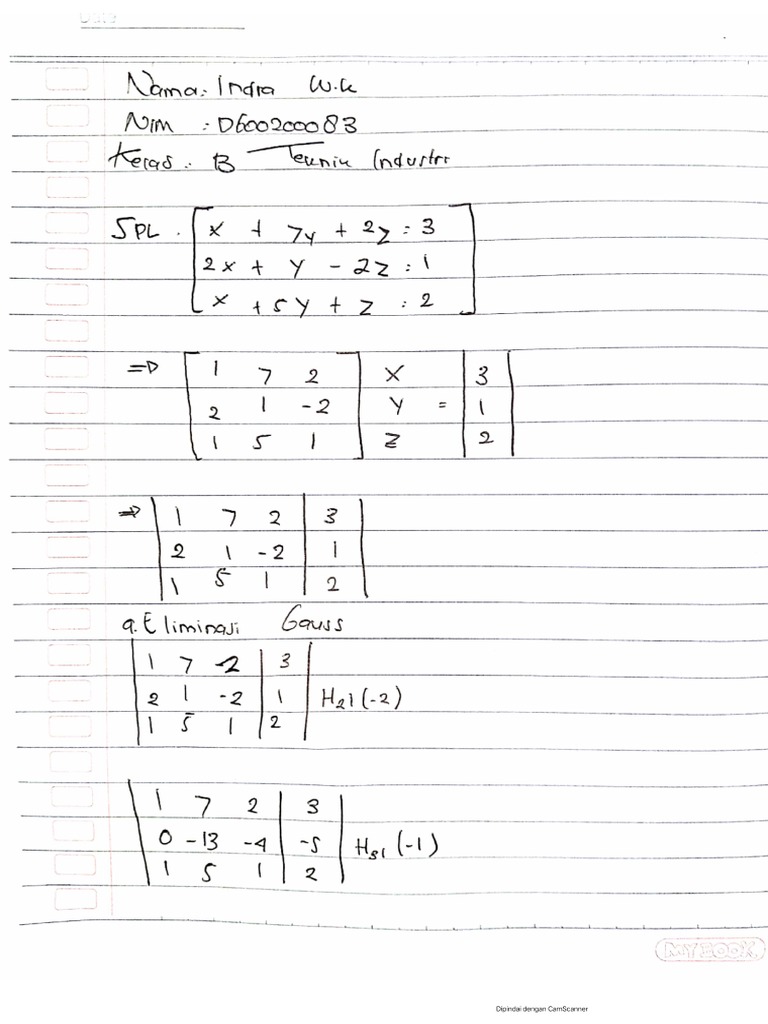 Nama: Indra W.K
Nim : D600200083
Keras : B Teknik Industri
SPL : x + 7y + 2z = 3
2x + y - 2z = 1
x + 5y + z = 2
=> 1 7 2 x 3
2 1 -2 y = 1
1 5 1 z 2
=> 1 7 2 3
2 1 -2 1
1 5 1 2
a. Eliminasi Gauss
1 7 2 3
2 1 -2 1 H21(-2)
1 5 1 2
1 7 2 3
0 -13 -4 -5 H31(-1)
1 5 1 2
MY BOOK
Dipindai dengan CamScanner